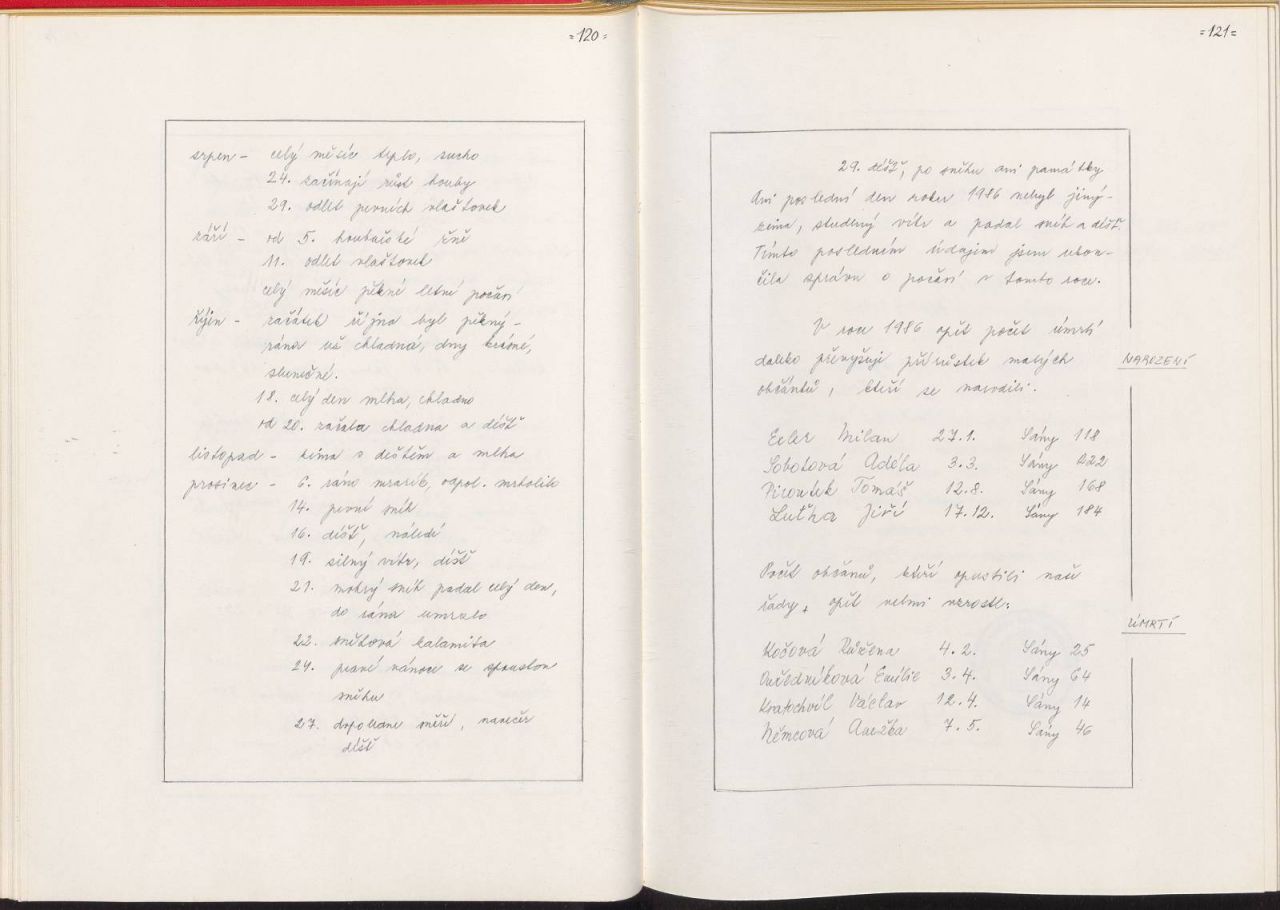 =120=
srpen - celý měsíc teplo, sucho
24. začínají růst houby
29. odlet prvních vlaštovek
září - od 5. houbařské žně
11. odlet vlaštovek
celý měsíc pěkné letní počasí
říjen - začátek října byl pěkný -
rána už chladná, dny krásné,
slunečné.
18. celý den mlha, chladno
od 20. začala chladna a déšť
listopad - zima s deštěm a mlha
prosinec - 6. ráno mrazík, odpol. mrholilo
14. první sníh
16. déšť, náledí
19. silný vítr, déšť
21. mokrý sníh padal celý den,
do rána umrzlo
22. sněhová kalamita
24. pravé vánoce se spoustou
sněhu
27. dopoledne sněží, navečer
déšť
=121=
29. déšť, po sněhu ani památky
Ani poslední den roku 1986 nebyl jiný -
zima, studený vítr a padal sníh a déšť.
Tímto posledním údajem jsem ukon-
čila zprávu o počasí v tomto roce.
V roce 1986 opět počet úmrtí
daleko převyšuje přírůstek malých
občánků, kteří se narodili.
NAROZENÍ
Ecler Milan 27.1. Sány 118
Sobotová Adéla 3.3. Sány 222
Piroutek Tomáš 12.8. Sány 168
Luťha Jiří 17.12. Sány 184
Počet občanů, kteří opustili naše
řady, opět velmi vzrostl:
ÚMRTÍ
Košová Růžena 4.2. Sány 25
Ouředníková Emilie 3.4. Sány 64
Kratochvíl Václav 12.4. Sány 14
Němcová Anežka 7.5. Sány 46